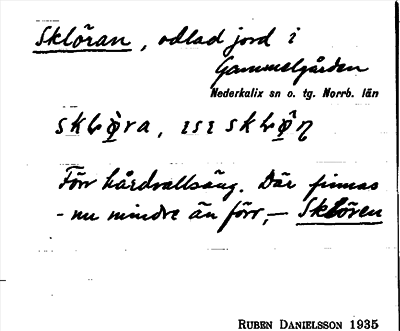 Sklöran, odlad jord i
Gammelgården
Nederkalix sn o. tg. Norrb. län
Förr hårdvallsäng. Där finnas
- nu mindre än förr, - Sklören
RUBEN DANIELSSON 1935